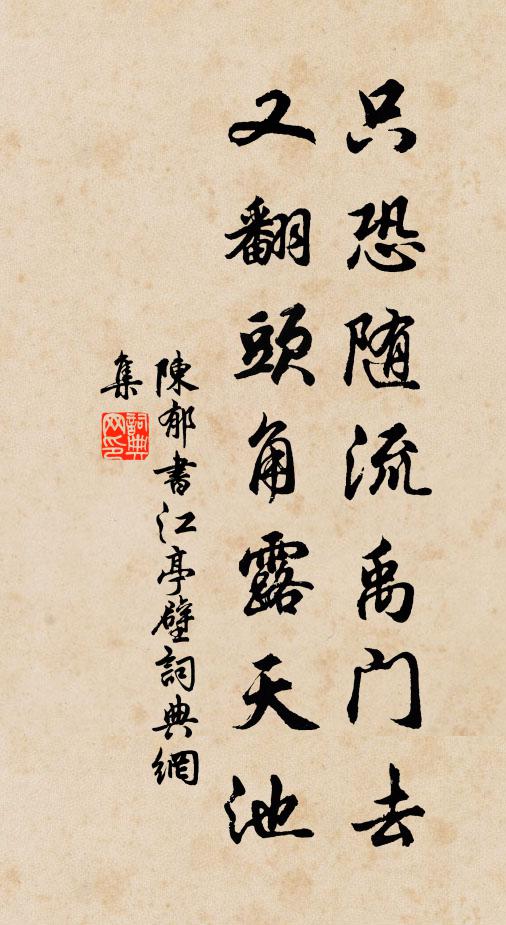 只恐随流禹門去
又翻頭角露天池
陳郁書江亭壁詞典網
集
詞典
网印